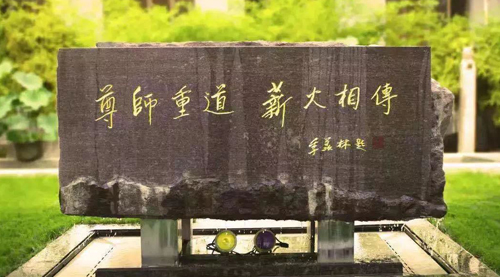 尊師重道 薪火相傳
季羡林題